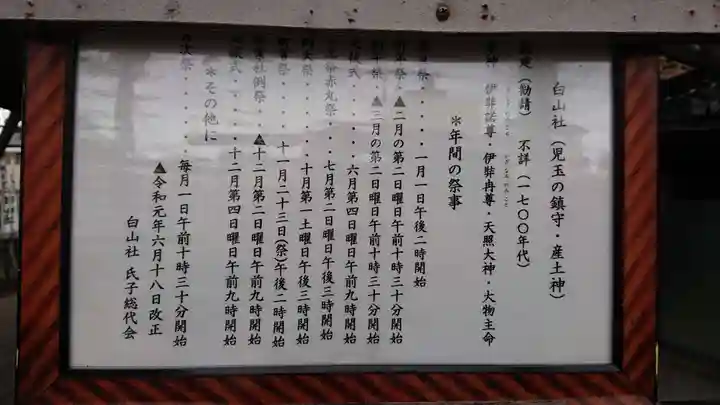 白山社(児玉の鎮守・産土神)
(勧請) 不詳(一七〇〇年代)
神・伊弉諾尊・伊弉冉尊・天照大神・大物主命
*年間の祭事
祭・・・・・一月一日午後二時開始
祭・▲二月の第二日曜日午前十時三十分開始
祭・▲三月の第二日曜日午前十時三十分開始
式・・・・・六月第四日曜日午前九時開始
赤丸祭・・・七月第二日曜日午後三時開始
祭・・・・・十月第一土曜日午後三時開始
祭・・・・十一月二十三日(祭)午後二時開始
社例祭・・▲十二月第二日曜日午前九時開始
式・・・・・十二月第四日曜日午前九時開始
*その他に
次祭・・・・・毎月一日午前十時三十分開始
▲令和元年六月十八日改正
白山社 氏子総代会